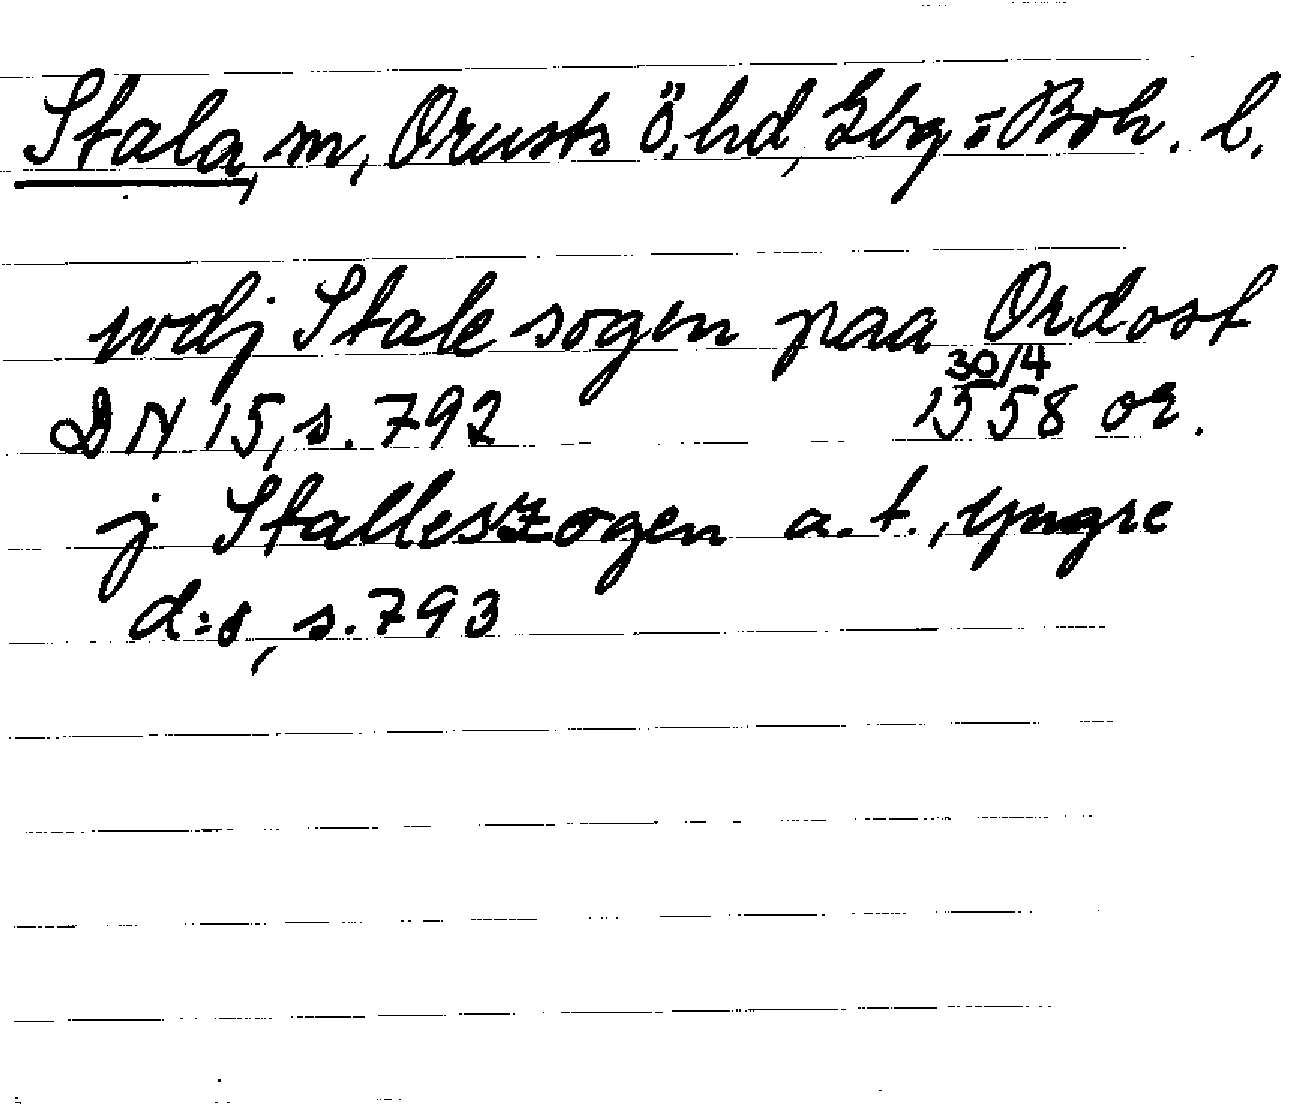 Stala, m, Orusts ö. hd, Gbg o Boh. l.
wdj Stale sogen paa Ordost
30/4
DN 15, s. 792 1558 or.
j Stalleszogen a. t., yngre
d:o, s. 793